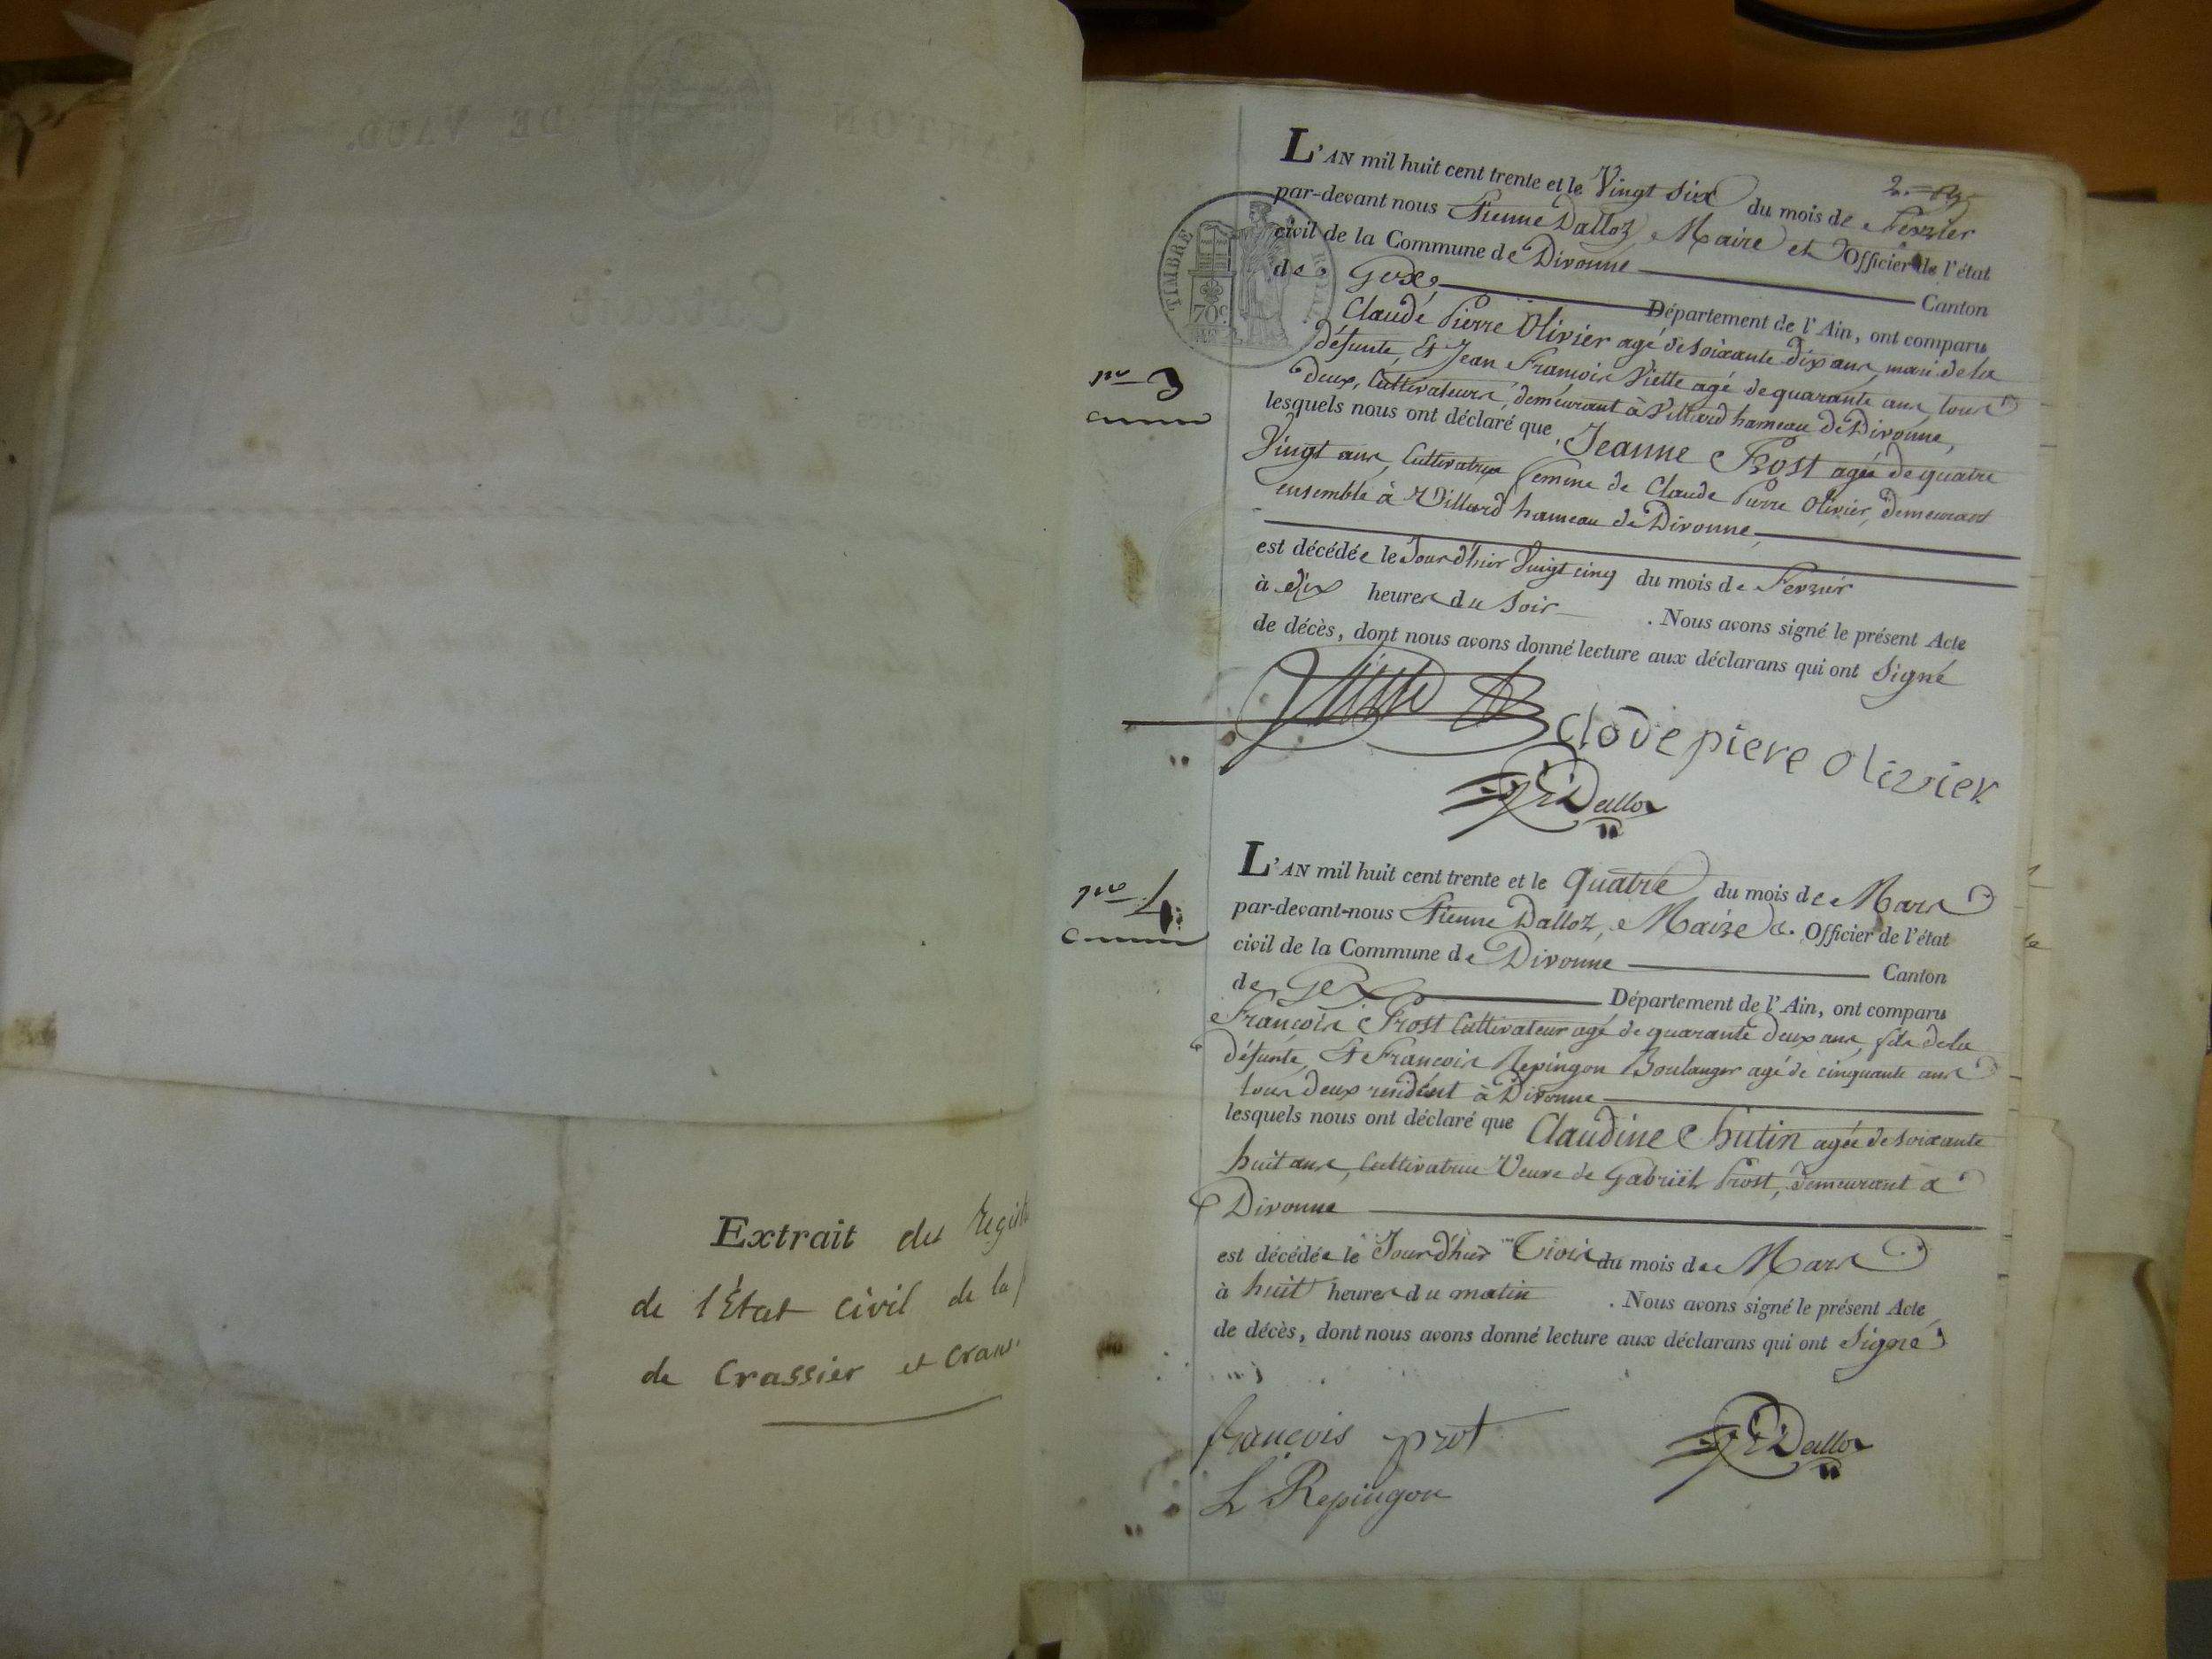 CANTON DE VAUD.
Extrait
Extrait des
de l'État civil de la
de Crassier et
2.
L'AN mil huit cent trente et le Vingt Six du mois de Fevrier
par-devant nous Etienne Dalloz, Maire et Officier de l'état
civil de la Commune de Divonne Canton
de Gex, Département de l'Ain, ont comparu
Claude Pierre Olivier agé de soixante dix ans, mari de la
défunte, Et Jean François Viette agé de quarante ans, tous
deux, Cultivateurs, demeurant à Villard hameau de Divonne,
lesquels nous ont déclaré que Jeanne Prost agée de quatre
Vingt ans, Cultivatrice femme de Claude Pierre Olivier, demeurant
ensemble à Villard hameau de Divonne,
est décédée le Jour d'hier Vingt cinq du mois de Fevrier
à dix heures du Soir . Nous avons signé le présent Acte
de décès, dont nous avons donné lecture aux déclarans qui ont Signé
TIMBRE ROYAL
70 c.
no 3
clode piere olivier
E Dalloz
no 4
L'AN mil huit cent trente et le Quatre du mois de Mars
par-devant-nous Etienne Dalloz, Maire & Officier de l'état
civil de la Commune de Divonne Canton
de Gex Département de l'Ain, ont comparu
François Prost Cultivateur agé de quarante deux ans, fils de la
défunte, Et François Repingon Boulanger agé de cinquante ans
tous deux résident à Divonne
lesquels nous ont déclaré que Claudine Chutin agée de soixante
huit ans, Cultivatrice Veuve de Gabriel Prost, demeurant à
Divonne
est décédée le Jour d'hier Trois du mois de Mars
à huit heures du matin . Nous avons signé le présent Acte
de décès, dont nous avons donné lecture aux déclarans qui ont Signé
françois prot
E Dalloz
L Repingon